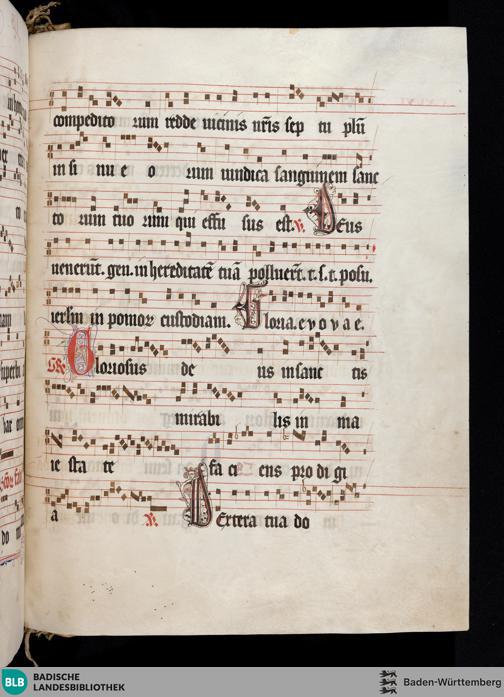 compedito rum redde uicinis nr̄is sep tu plū
in si nu e o rum uindica sanguinem sanc
to rum tuo rum qui effu sus est. V. Deus
uenerūt. gen. in hereditatē tuā polluert. t. s. t. posu.
ierlm in pomoꝝ custodiam. Gloria. e v o v a e.
Gloriosus de us in sanc tis
mirabi lis in ma
ie sta te fa ci ens pro di gi
a Dextera tua do
BLB BADISCHE LANDESBIBLIOTHEK
Baden-Württemberg